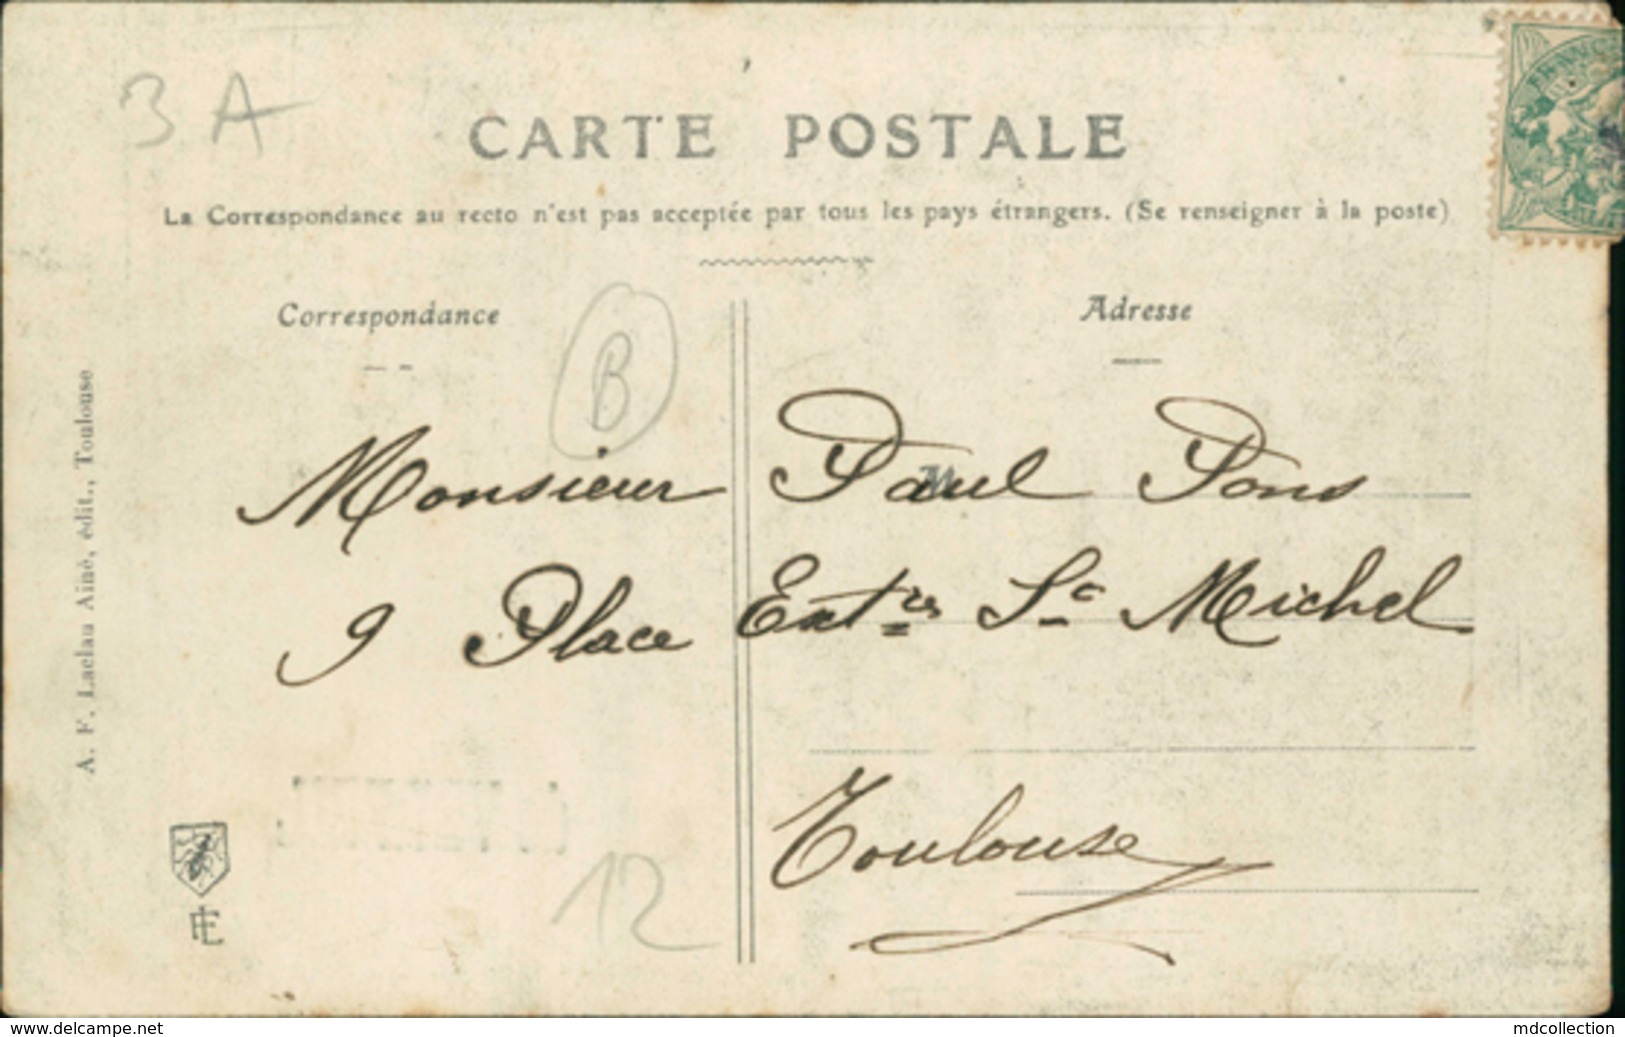 3 A
CARTE POSTALE
La Correspondance au recto n'est pas acceptée par tous les pays étrangers. (Se renseigner à la poste)
Correspondance
Adresse
B
Monsieur Paul Pons
9 Place Ext.res St Michel
Toulouse
12
A. F. Laclau Ainé, édit., Toulouse
www.delcampe.net
mdcollection